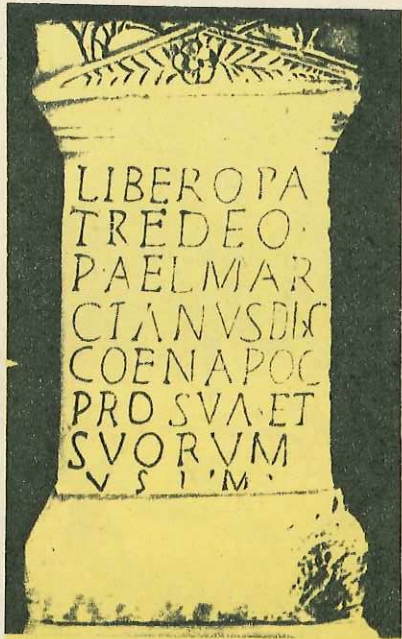 LIBERO PA
TRE DEO ·
P · AEL MAR
CIANVS DISC
COENAPOC
PRO SVA · ET
SVORVM
V S L M ·